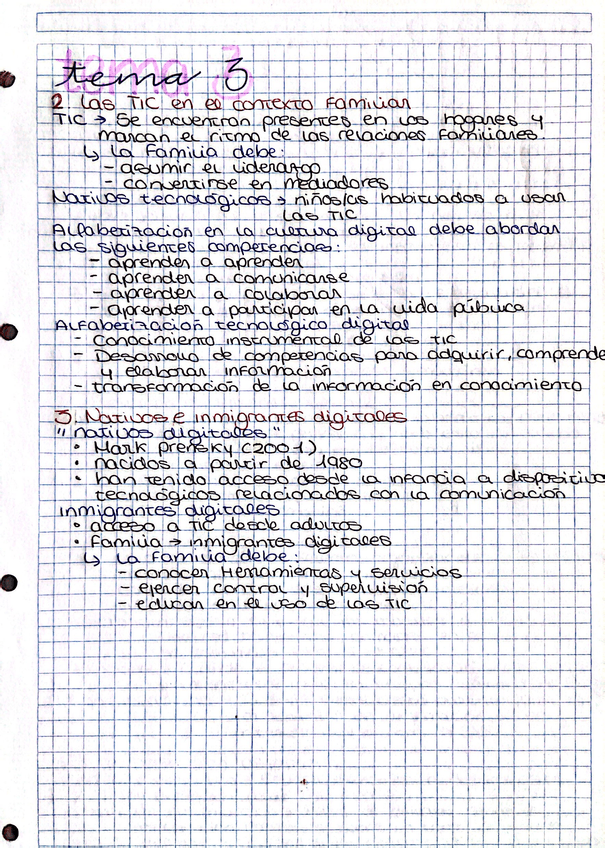 tema 3
2. Las TIC en el contexto familiar
TIC → Se encuentran presentes en los hogares y
marcan el ritmo de las relaciones familiares.
↳ La familia debe:
- asumir el liderazgo
- convertirse en mediadores
Nativos tecnológicos → niños/as habituados a usar
las TIC
Alfabetización en la cultura digital debe abordar
las siguientes competencias:
- aprender a aprender
- aprender a comunicarse
- aprender a colaborar
- aprender a participar en la vida pública
Alfabetización tecnológico digital
- Conocimiento instrumental de las TIC
- Desarrollo de competencias para adquirir, comprende
y elaborar información
- transformación de la información en conocimiento
3. Nativos e inmigrantes digitales
"nativos digitales"
• Mark Prensky (2001)
• nacidos a partir de 1980
• han tenido acceso desde la infancia a dispositivo
tecnológicos relacionados con la comunicación
inmigrantes digitales
• acceso a TIC desde adultos
• familia → inmigrantes digitales
↳ La familia debe:
- conocer herramientas y servicios
- ejercer control y supervisión
- educar en el uso de las TIC